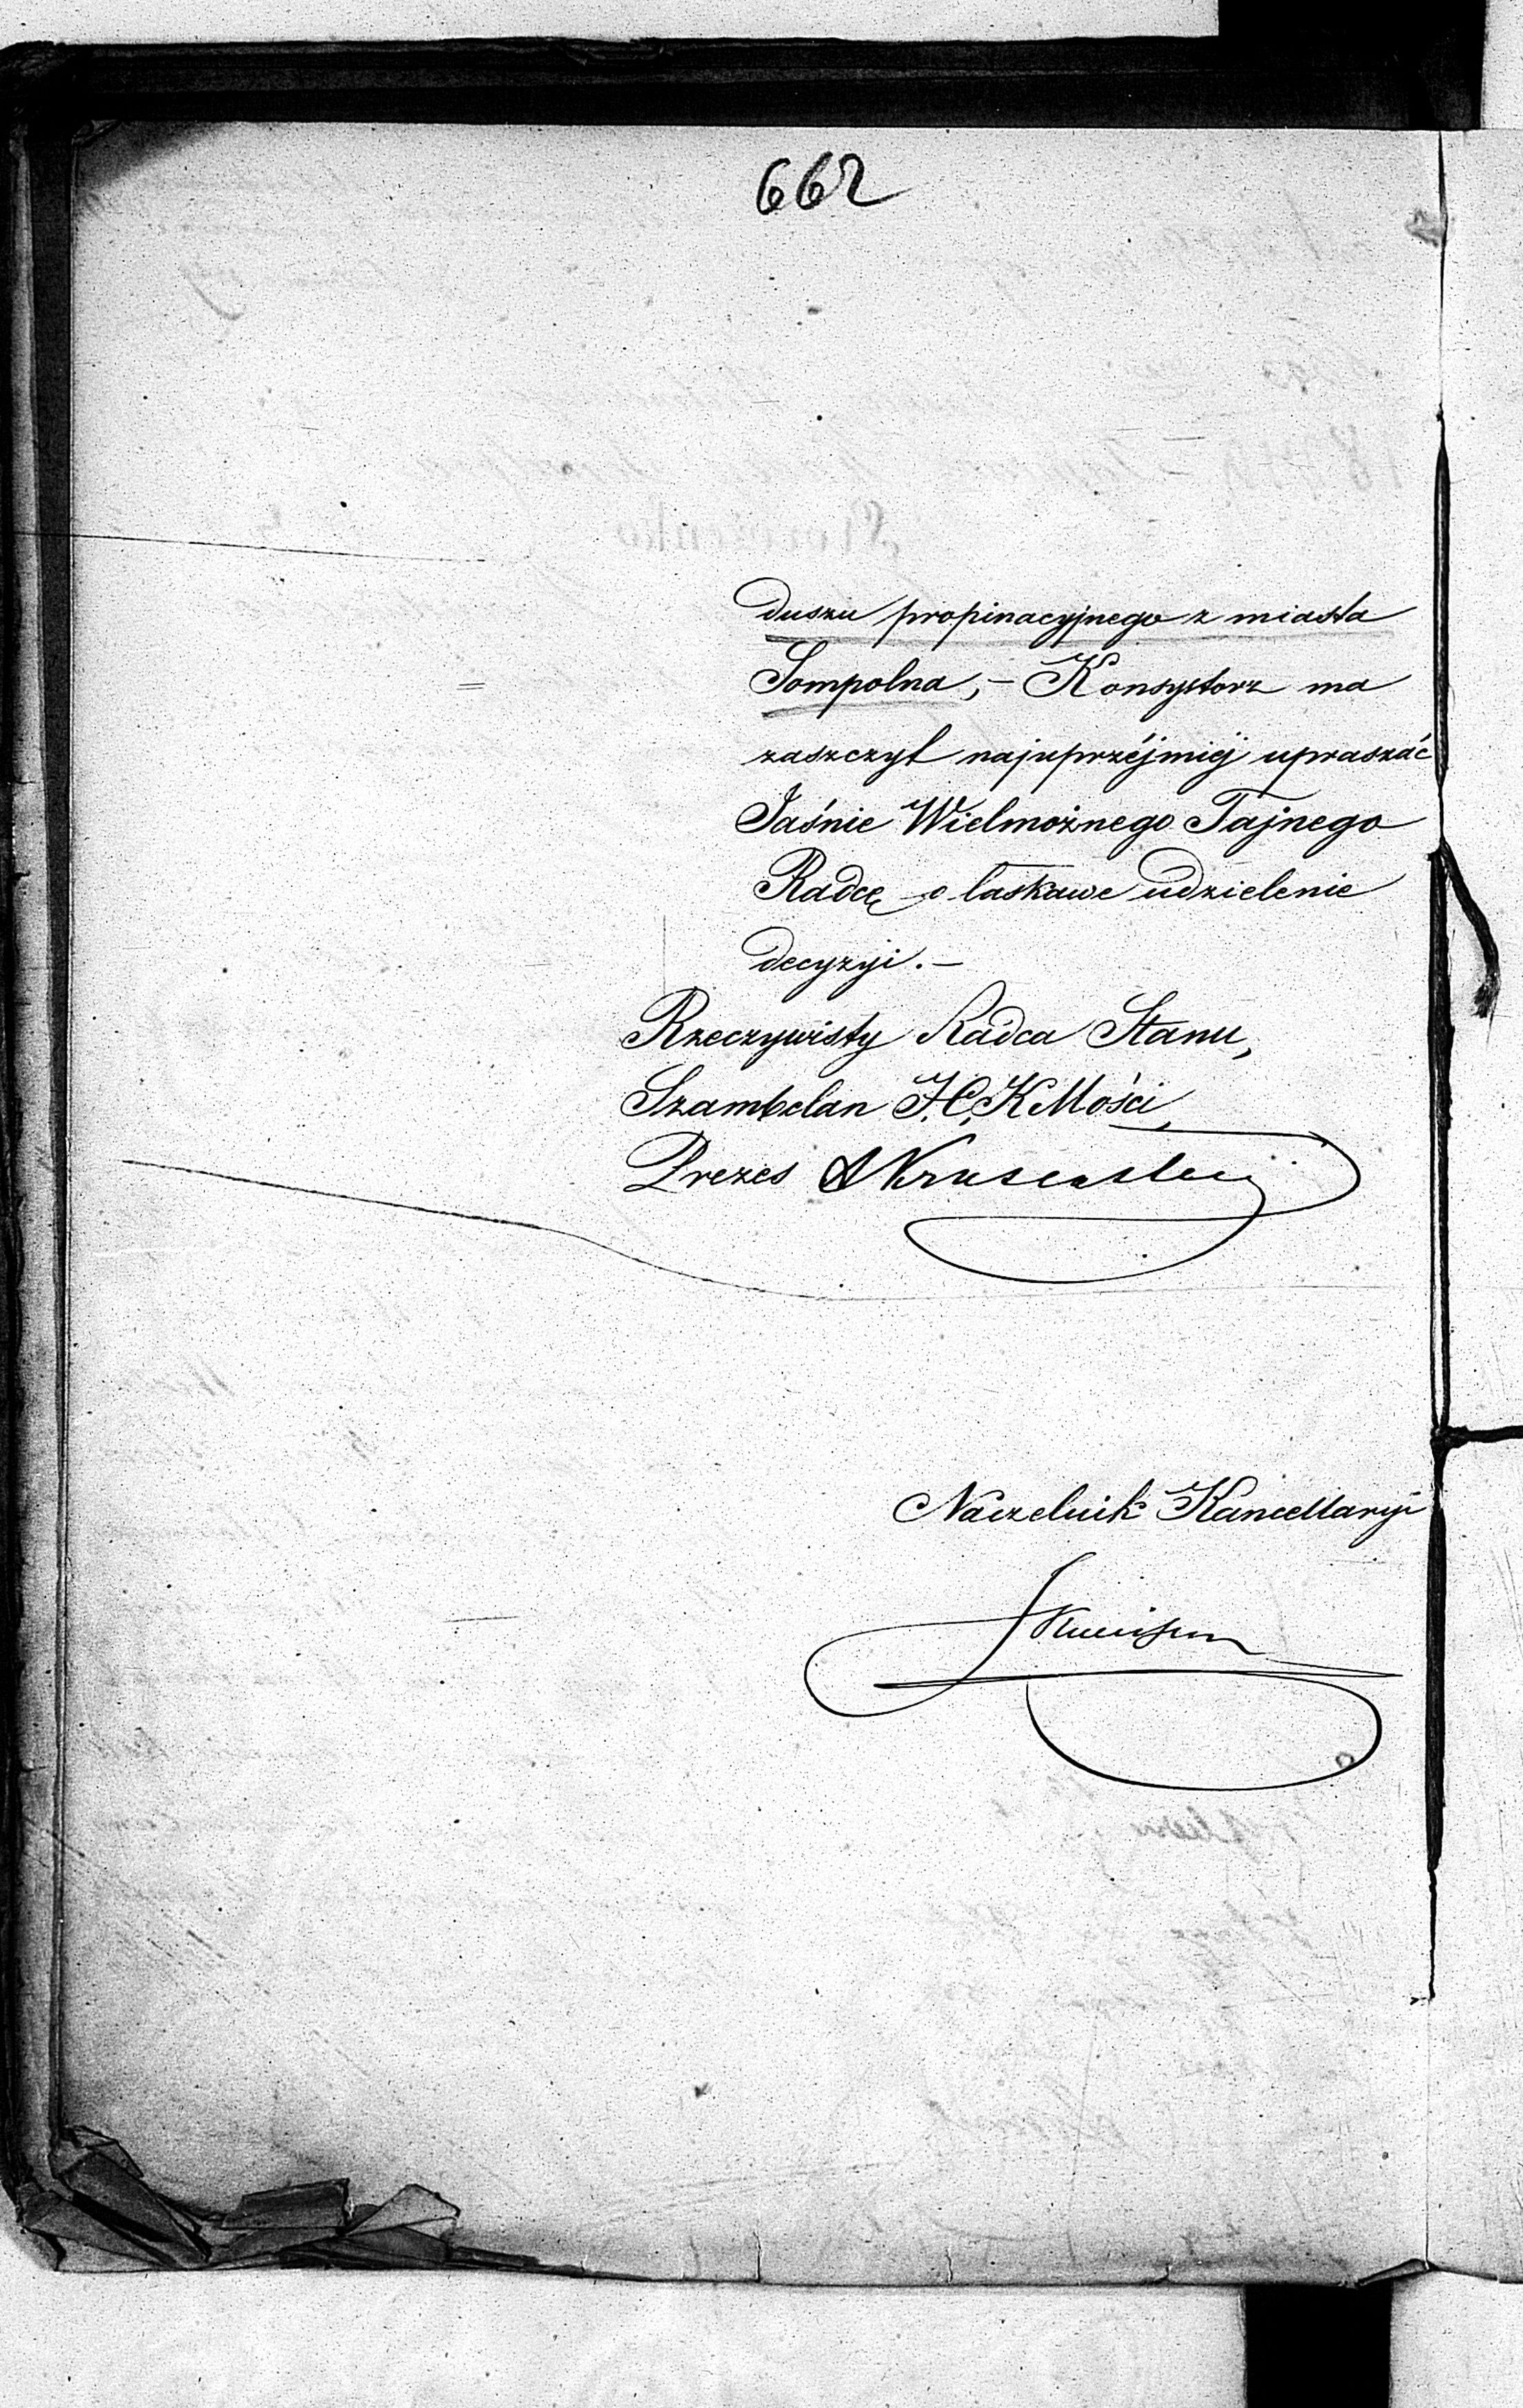 662
duszu propinacyjnego z miasta
Sompolna, – Konsystorz ma
zaszczyt najuprzéjmiéj upraszać
Jaśnie Wielmożnego Tajnego
Radcę o łaskawe udzielenie
decyzyi. –
Rzeczywisty Radca Stanu,
Szambelan J.C.K Mości,
Prezes
Naczelnik Kancellaryi